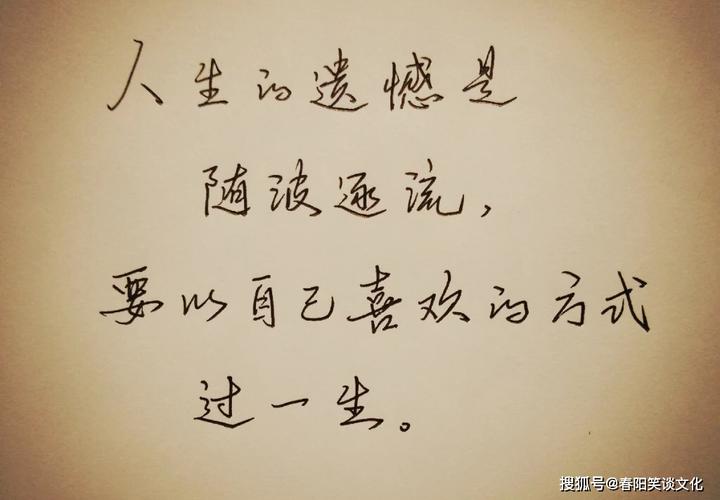 人生的遗憾是
随波逐流，
要以自己喜欢的方式
过一生。
搜狐号@春阳笑谈文化